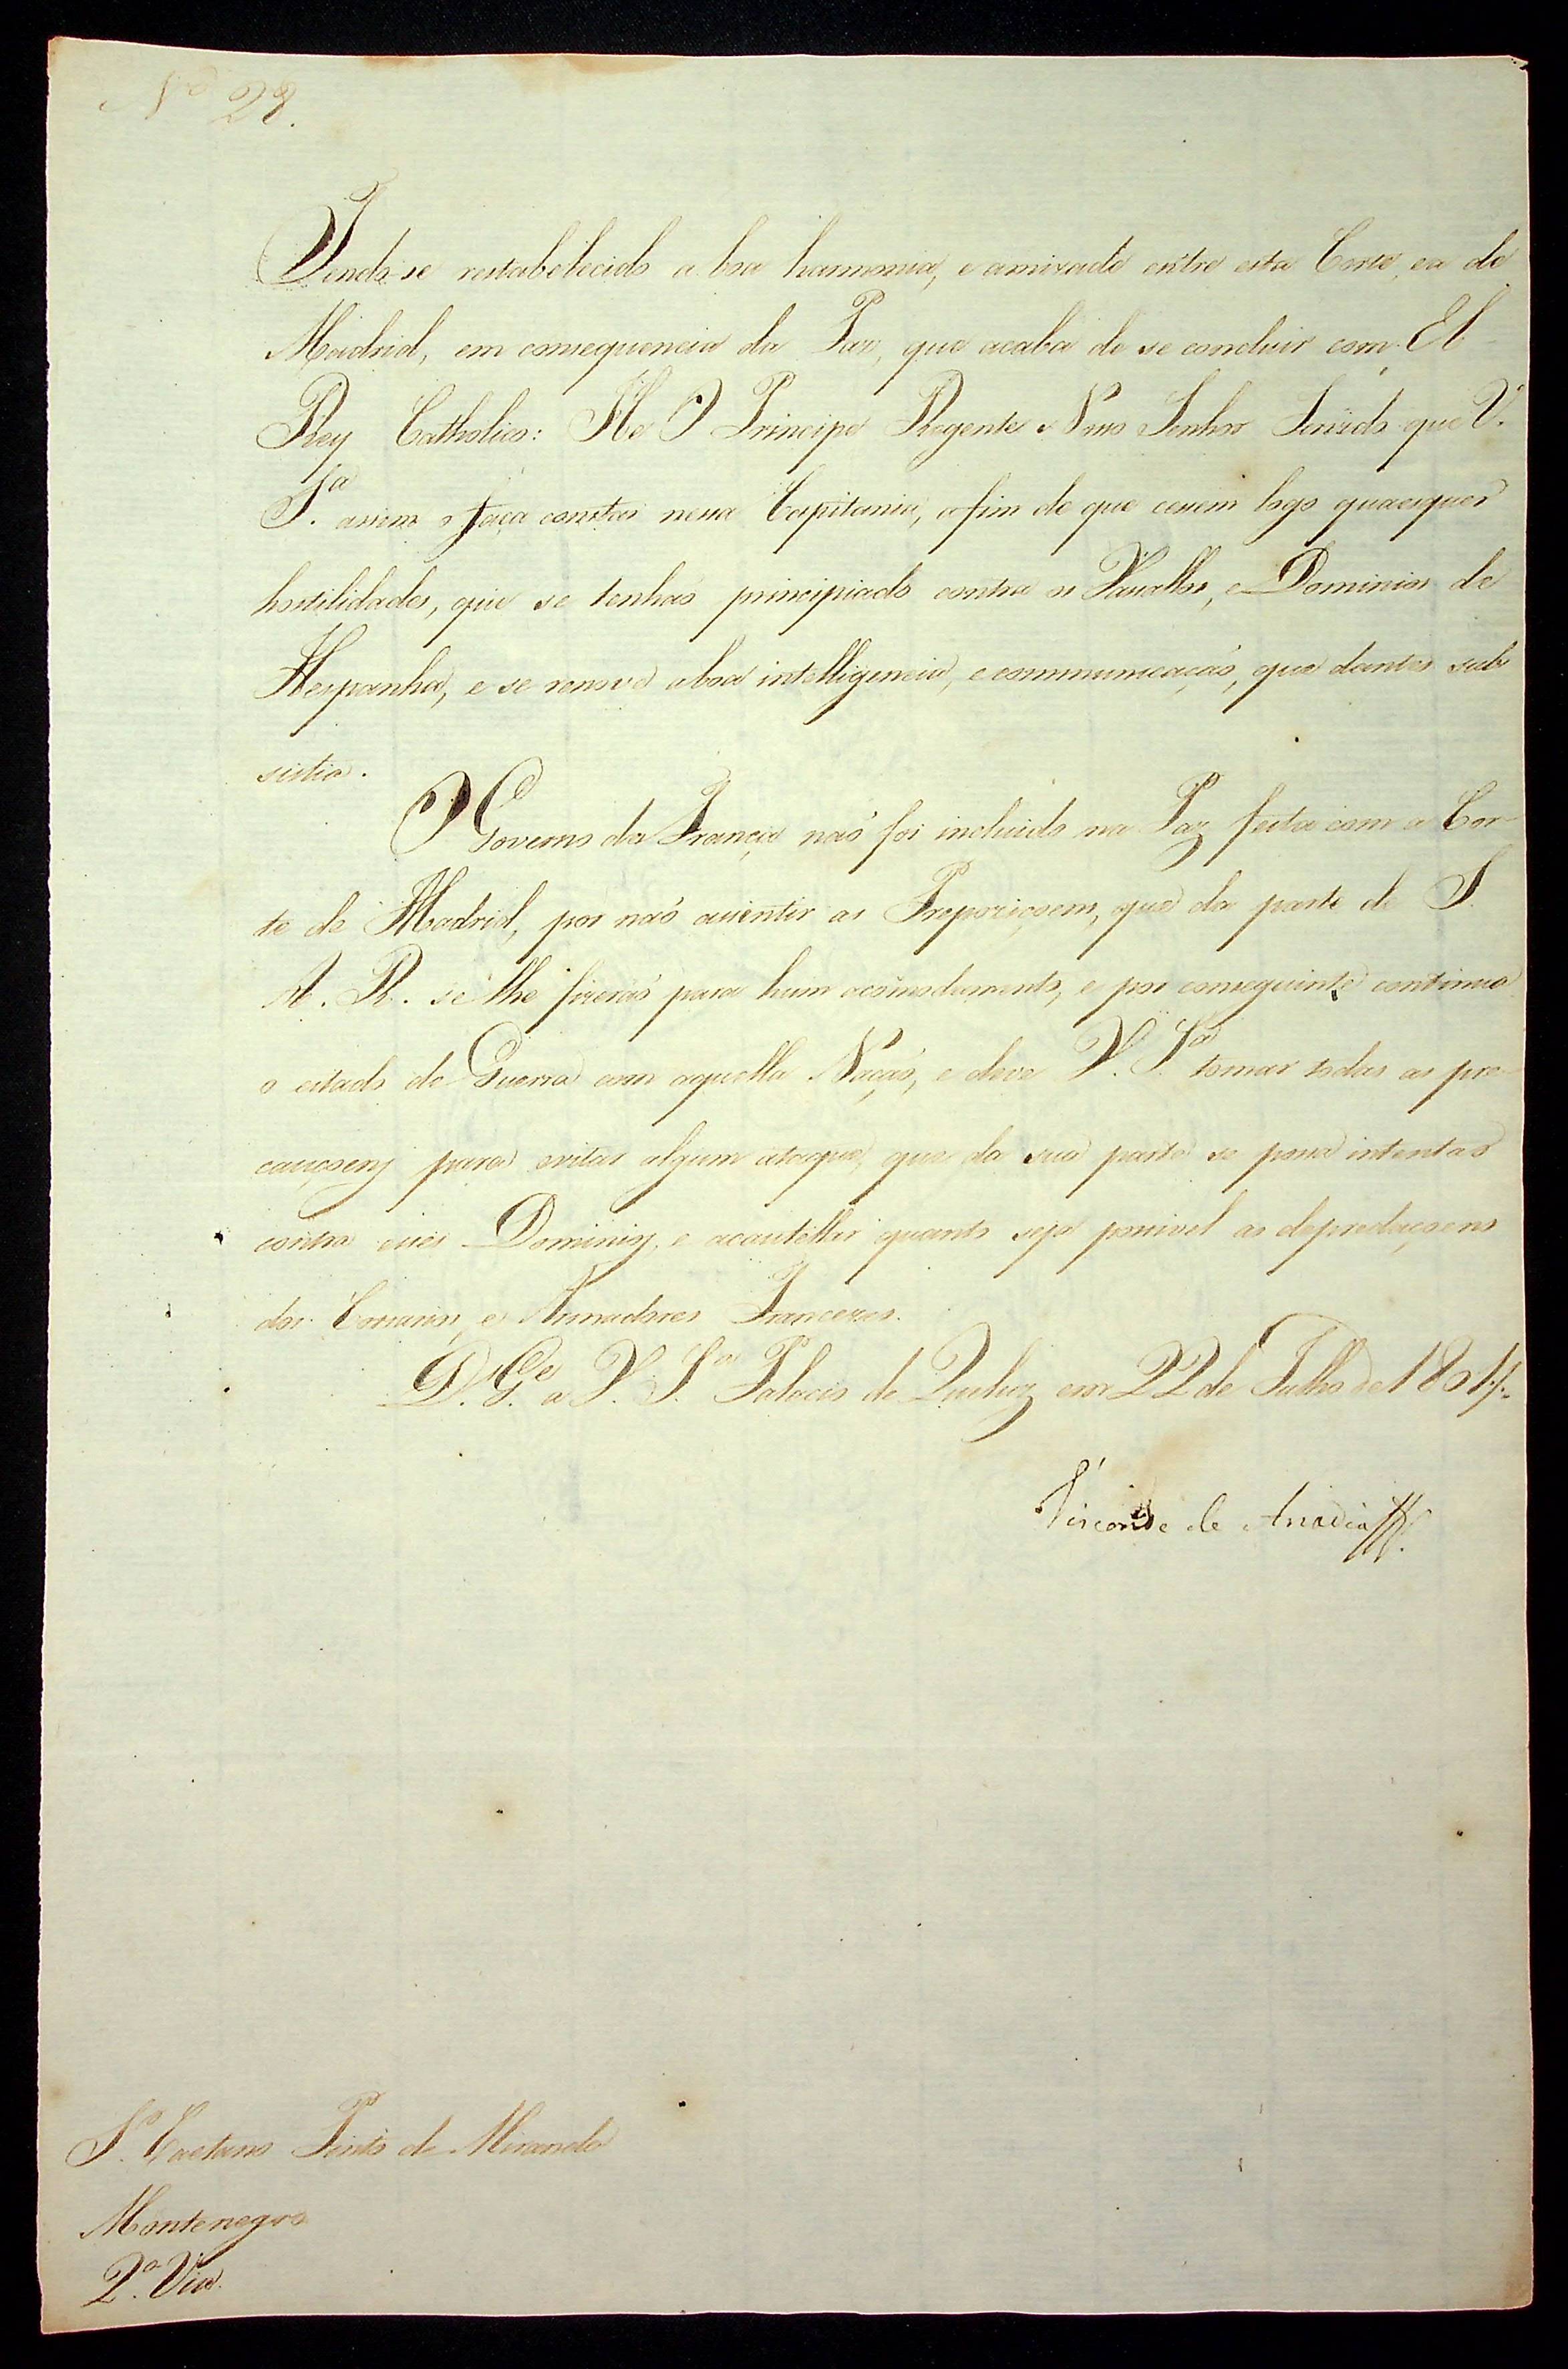 Nº 28.
Tendo-se restabelecido a boa harmonia, e amizade entre esta Corte, e a de
Madrid, em consequencia da Paz, que acaba de se concluir com El
Rey Catholico: He O Principe Regente Nosso Senhor Servido que V.
S.ª assim o faça constar nessa Capitania, a fim de que cessem logo quaesquer
hostilidades, que se tenhaõ principiado contra os Vassallos, e Dominios de
Hespanha, e se renove a boa intelligencia, e communicaçaõ, que dantes sub
sistia.
O Governo da França naõ foi incluido na Paz feita com a Cor-
te de Madrid, por naõ assentir as Proposiçoens, que da parte de S.
A. R. se lhe fizeraõ para hum acõmodamento, e por conseguinte continua
o estado de Guerra com aquella Naçaõ, e deve V. S.ª tomar todas as pre-
cauçoens para evitar algum ataque, que da sua parte se possa intentar
contra esses Dominios, e acautellar quanto seja possivel as depredaçoens
dos Corsarios, e Armadores Francezes.
D.s G.e a V. S.ª Palacio de Queluz em 22 de Julho de 1801.
Visconde de Anadia
S.r Caetano Pinto de Miranda
Montenegro
2.ª Via.